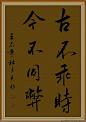 古不乖時
今不同弊